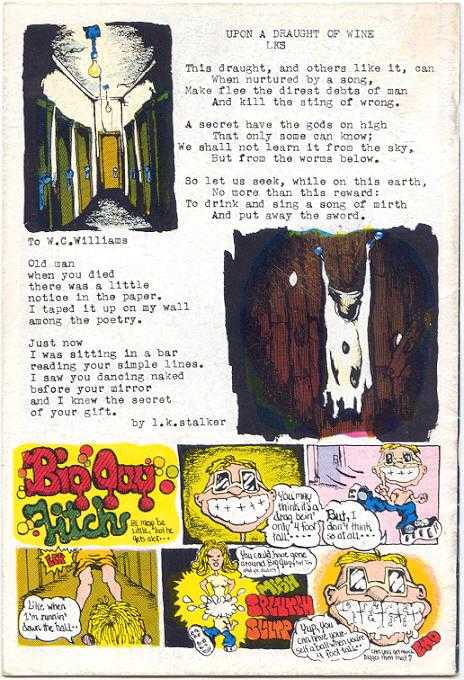 UPON A DRAUGHT OF WINE
LKS
This draught, and others like it, can
When nurtured by a song,
Make flee the direst debts of man
And kill the sting of wrong.
A secret have the gods on high
That only some can know;
We shall not learn it from the sky,
But from the worms below.
So let us seek, while on this earth,
No more than this reward:
To drink and sing a song of mirth
And put away the sword.
To W.C.Williams
Old man
when you died
there was a little
notice in the paper.
I taped it up on my wall
among the poetry.
Just now
I was sitting in a bar
reading your simple lines.
I saw you dancing naked
before your mirror
and I knew the secret
of your gift.
by l.k.stalker
Big Guy
Fitch
He may be
little, but he
gets alot...
You may
think it's a
drag bein'
only 4 foot
tall....
But, I
don't think
so at all...
Like when
I'm runnin'
down the hall..
You could have gone
around Big Guy,
Yup, you
can have your-
self a ball when you're
4 foot tall..
END